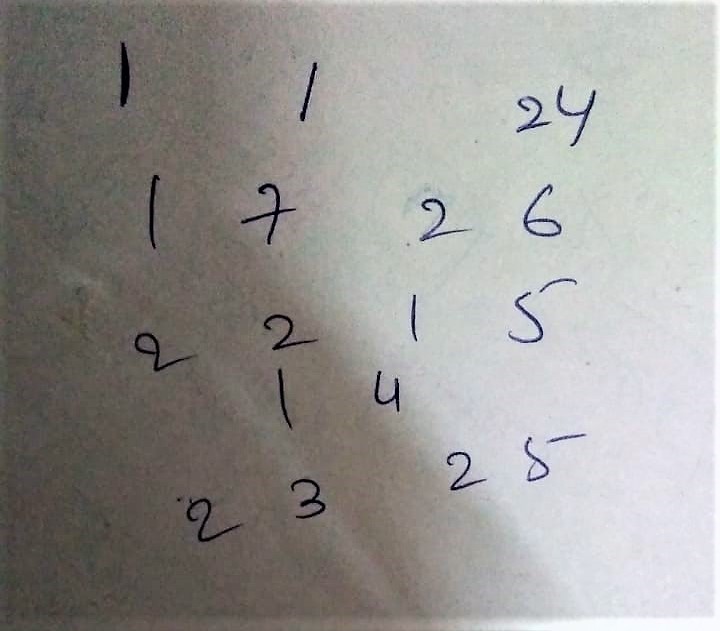 1 1 24
1 7 2 6
2 2 1 5
1 4
2 3 2 5